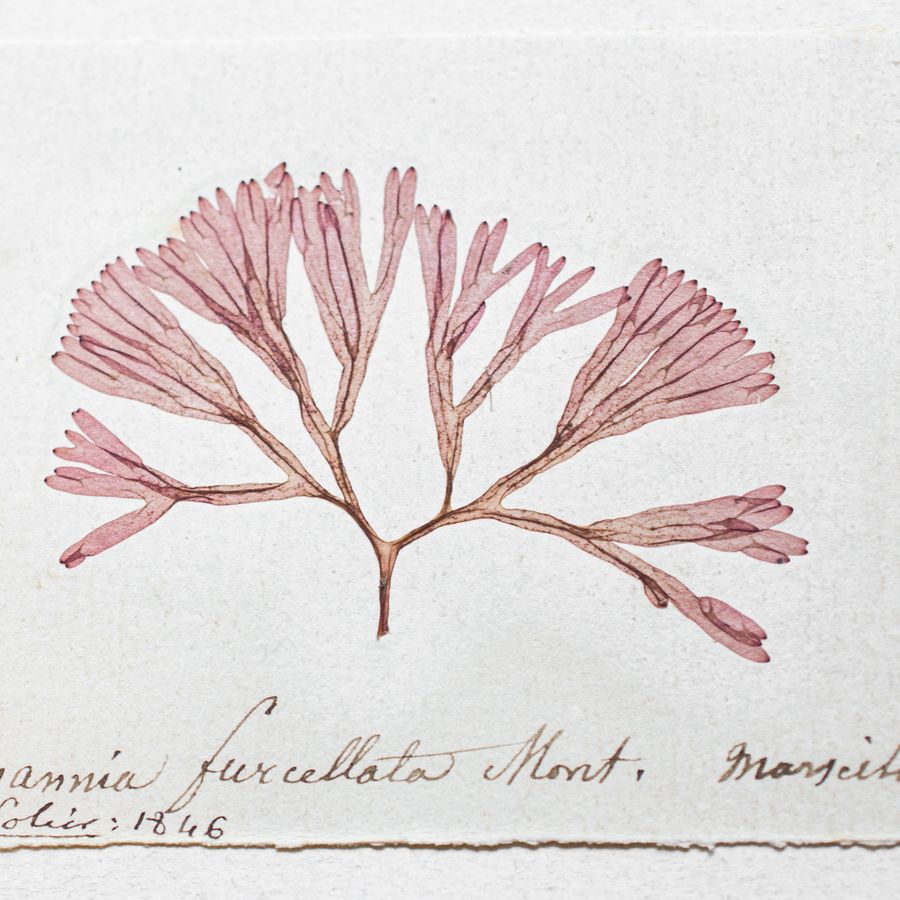 annia furcellata Mont. Marseill
Solier: 1846